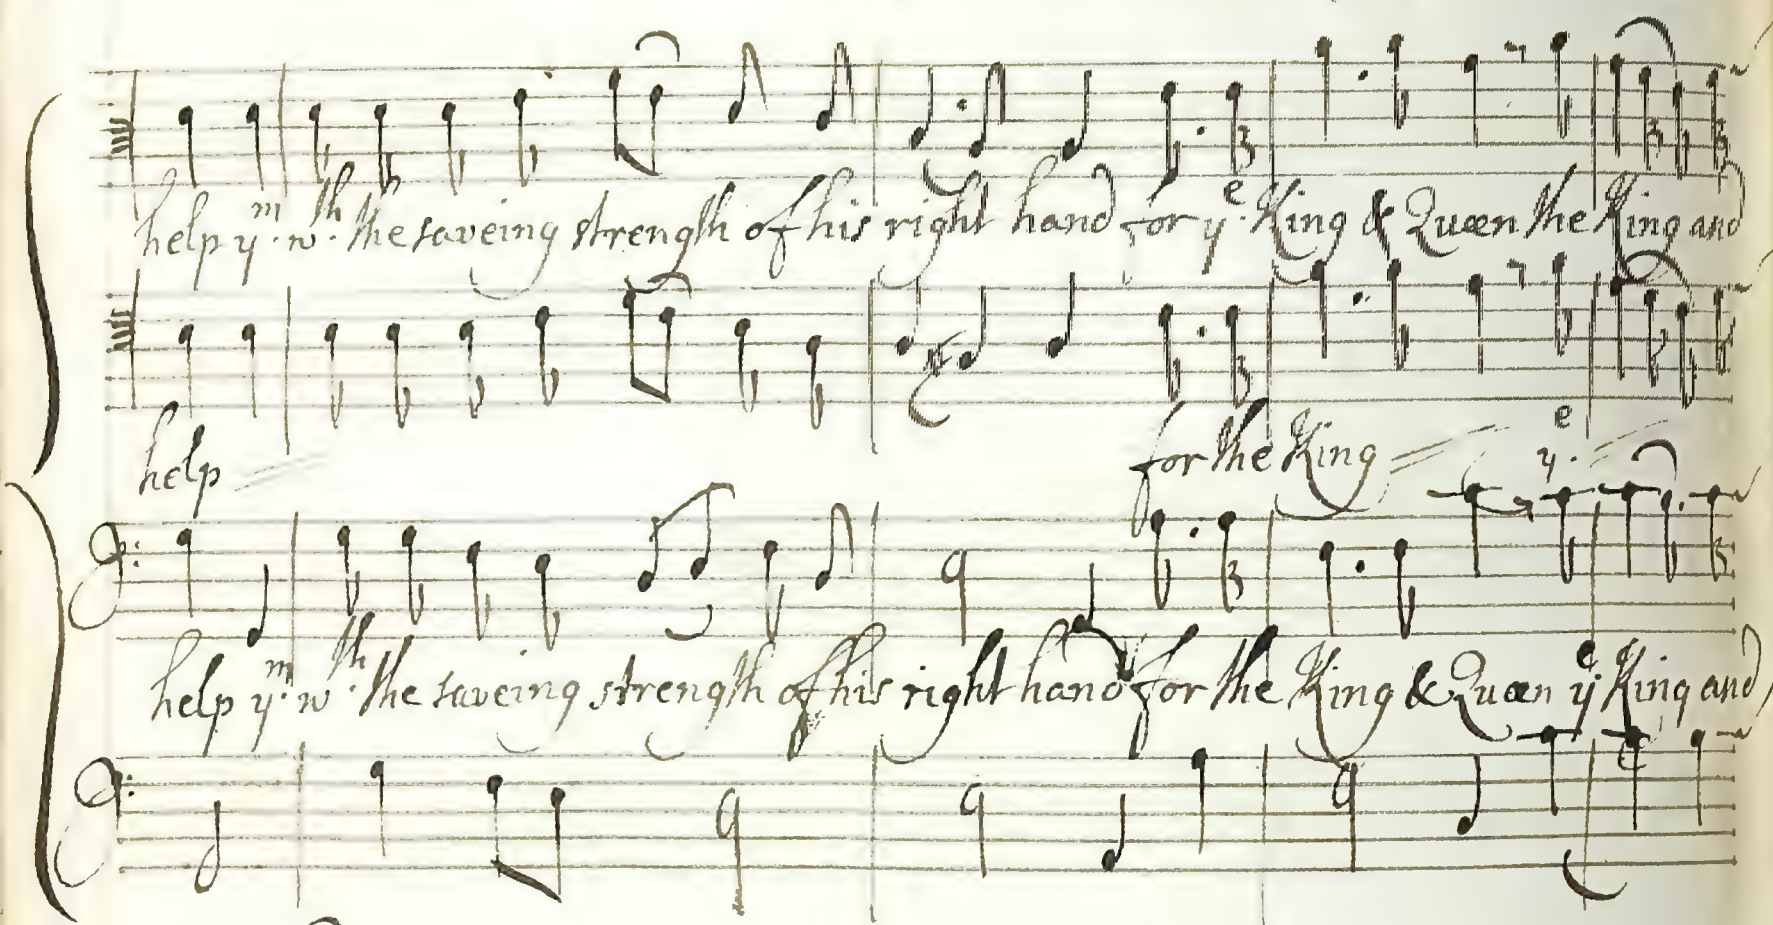 help yᵐ. wᵗʰ. the saveing strength of his right hand for yᵉ. King & Queen the King and
help
for the King yᵉ.
help yᵐ. wᵗʰ. the saveing strength of his right hand for the King & Queen yᵉ King and